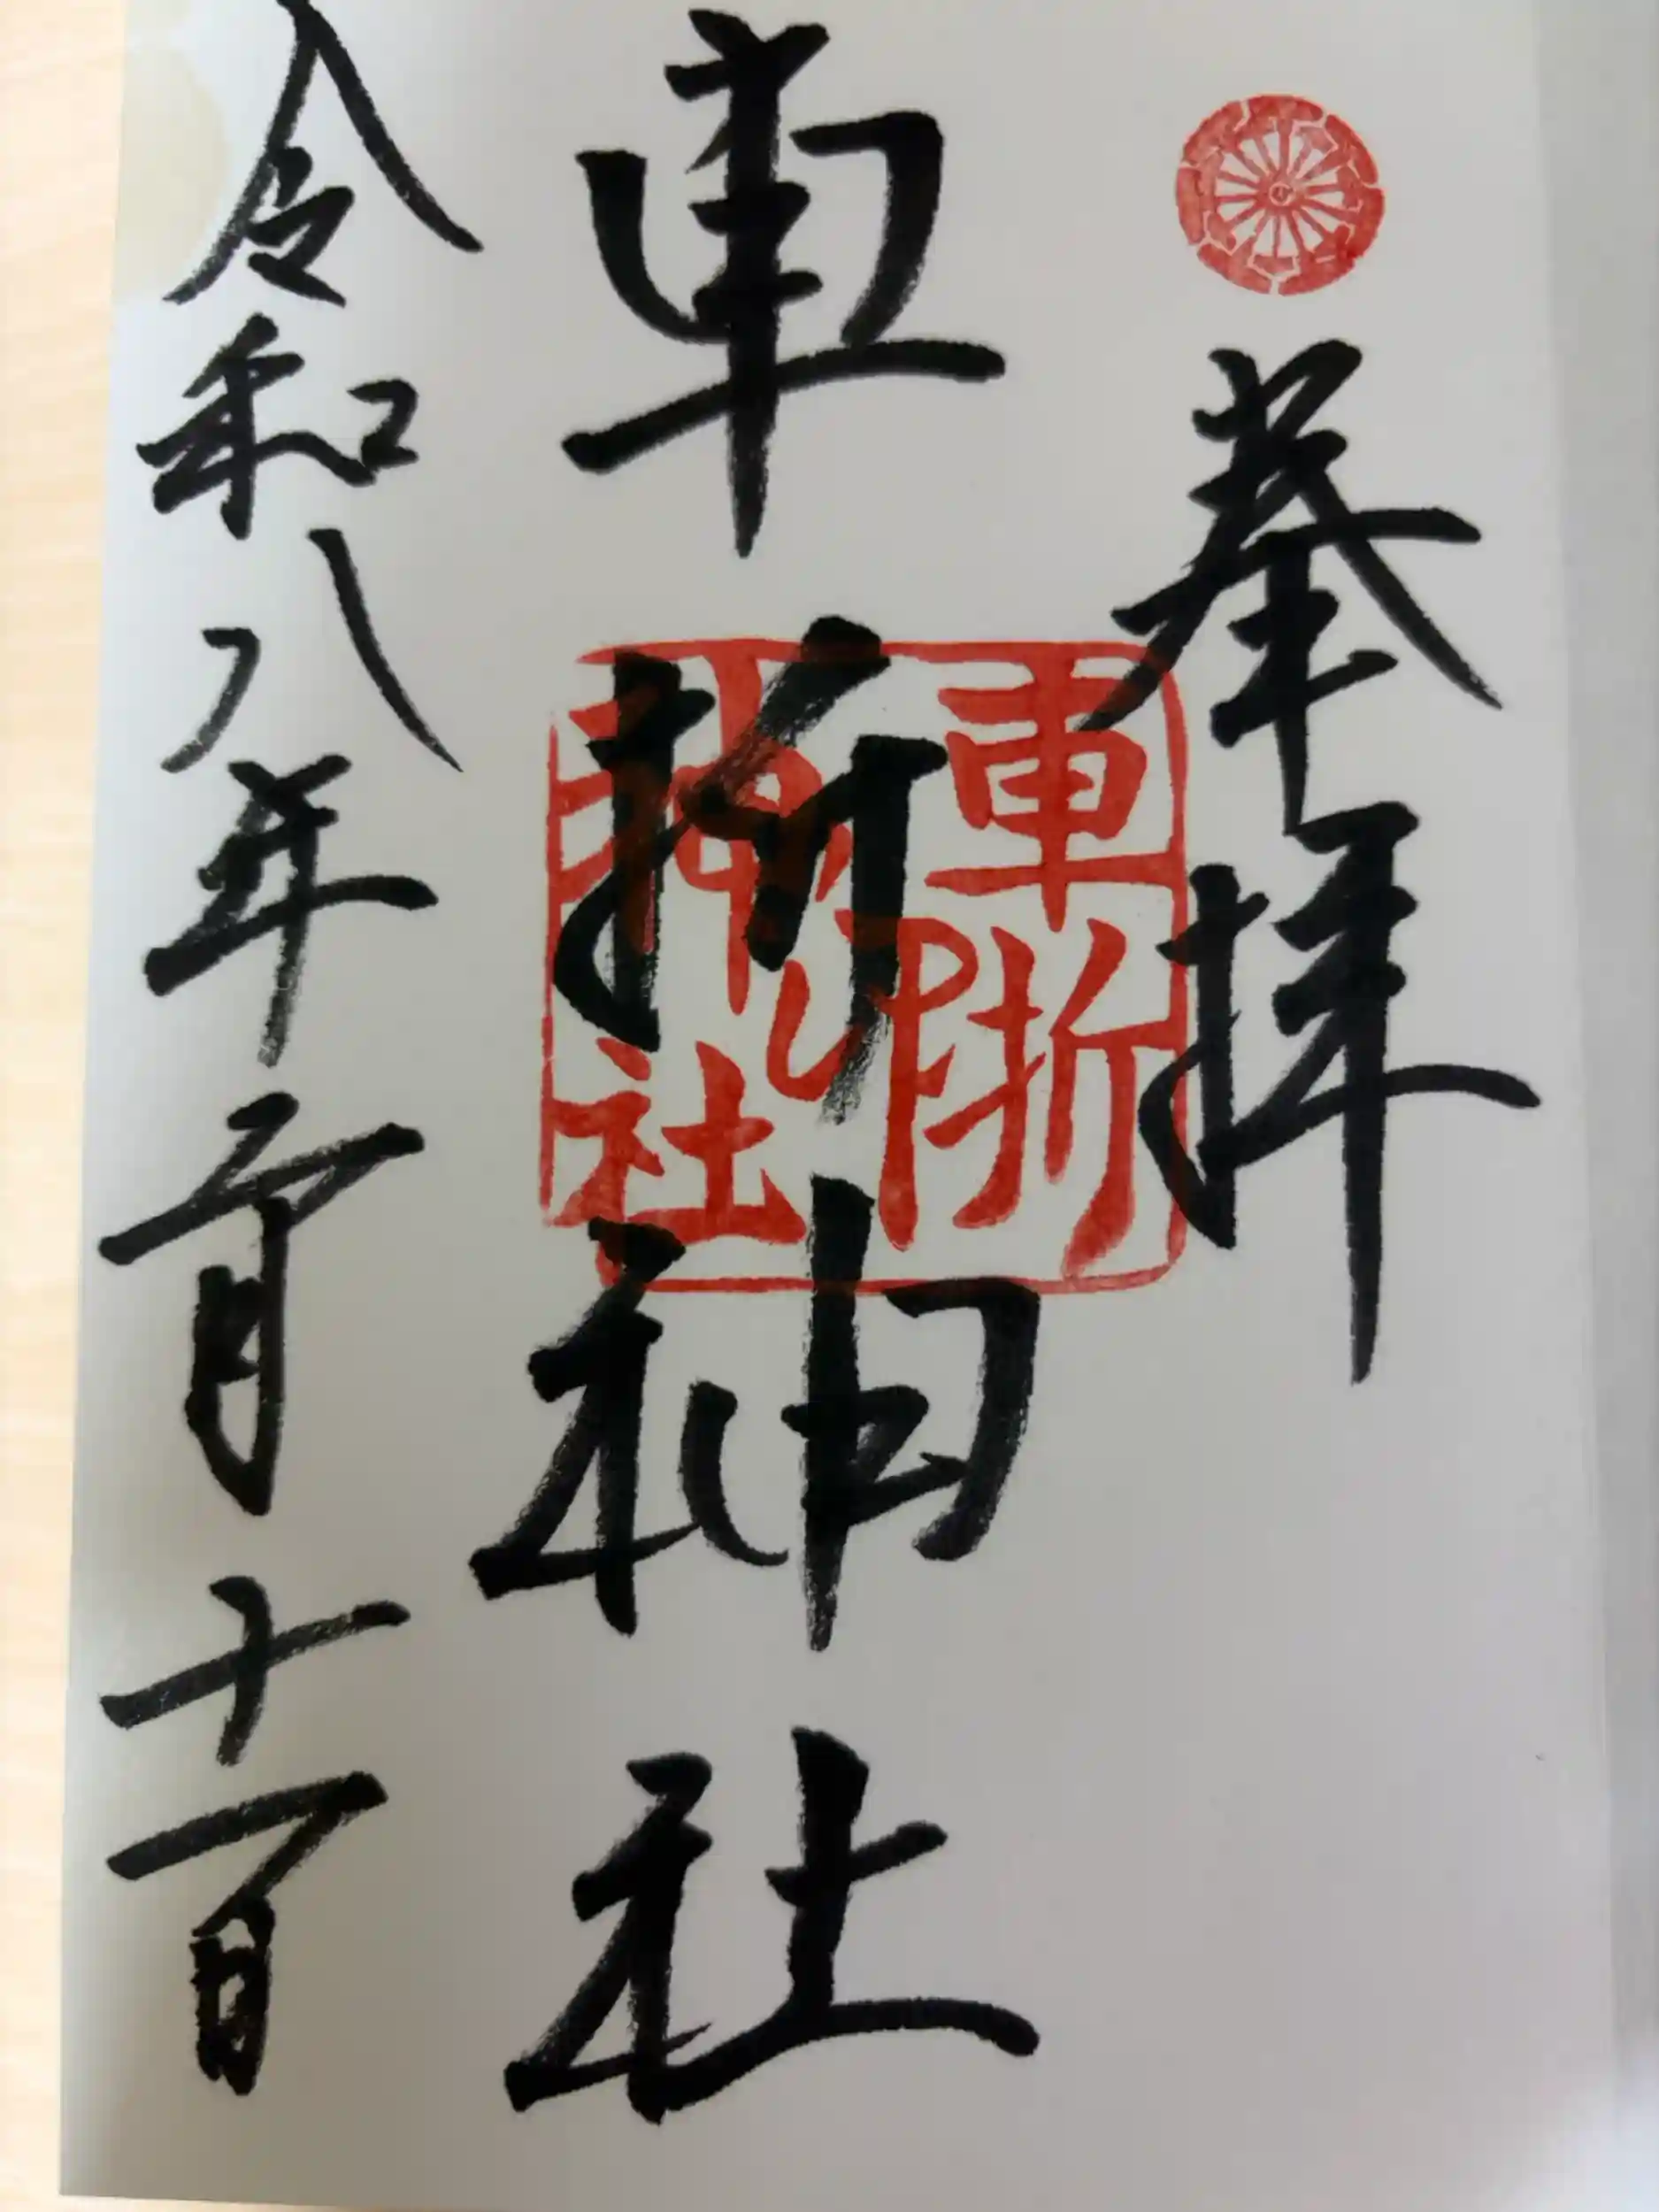 奉拝
車折神社
令和八年二月十一日
車折
神社